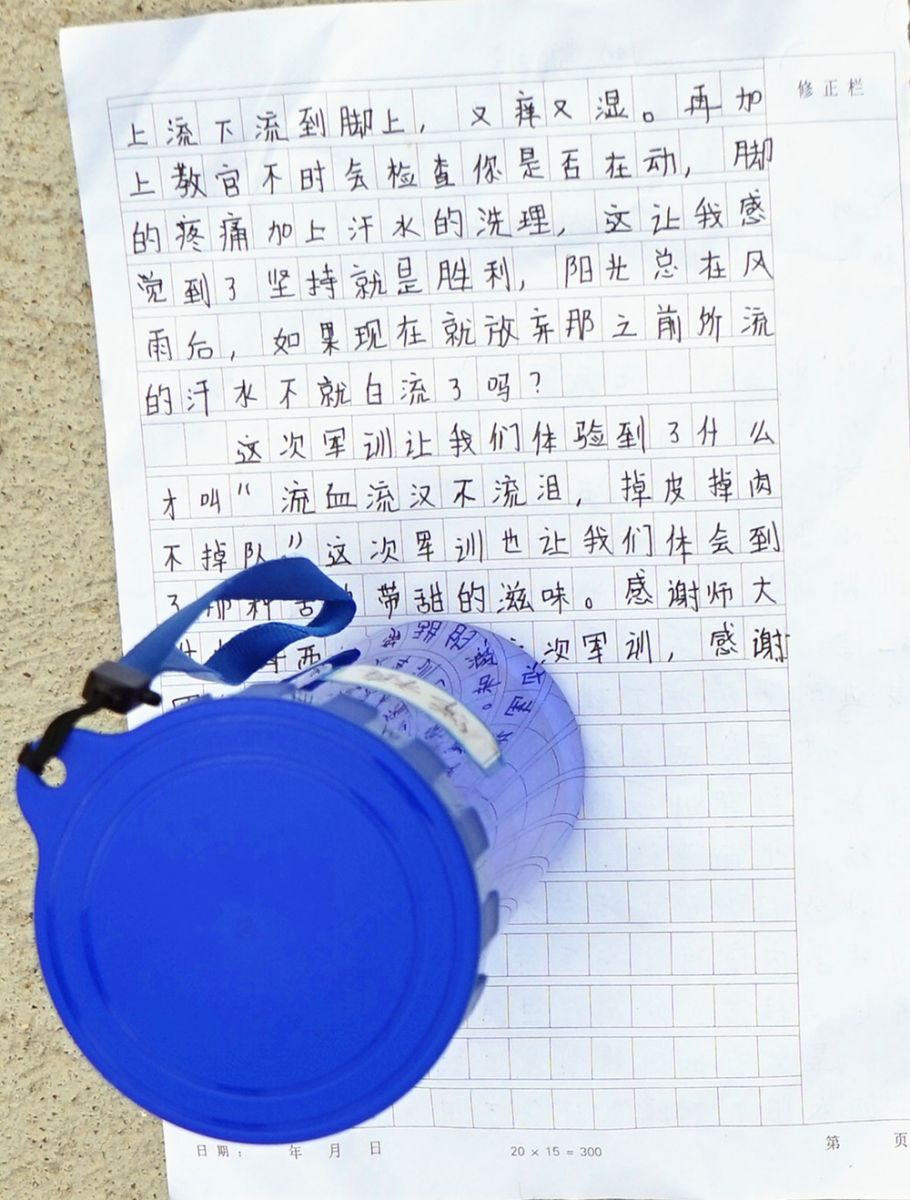 修正栏
上流下流到脚上，又痒又湿。再加
上教官不时会检查你是否在动，脚
的疼痛加上汗水的洗理，这让我感
觉到了坚持就是胜利，阳光总在风
雨后，如果现在就放弃那之前所流
的汗水不就白流了吗？
这次军训让我们体验到了什么
才叫“流血流汉不流泪，掉皮掉肉
不掉队”这次军训也让我们体会到
了那种苦 带甜的滋味。感谢师大
次军训，感谢
日期： 年 月 日
20 × 15 = 300
第 页